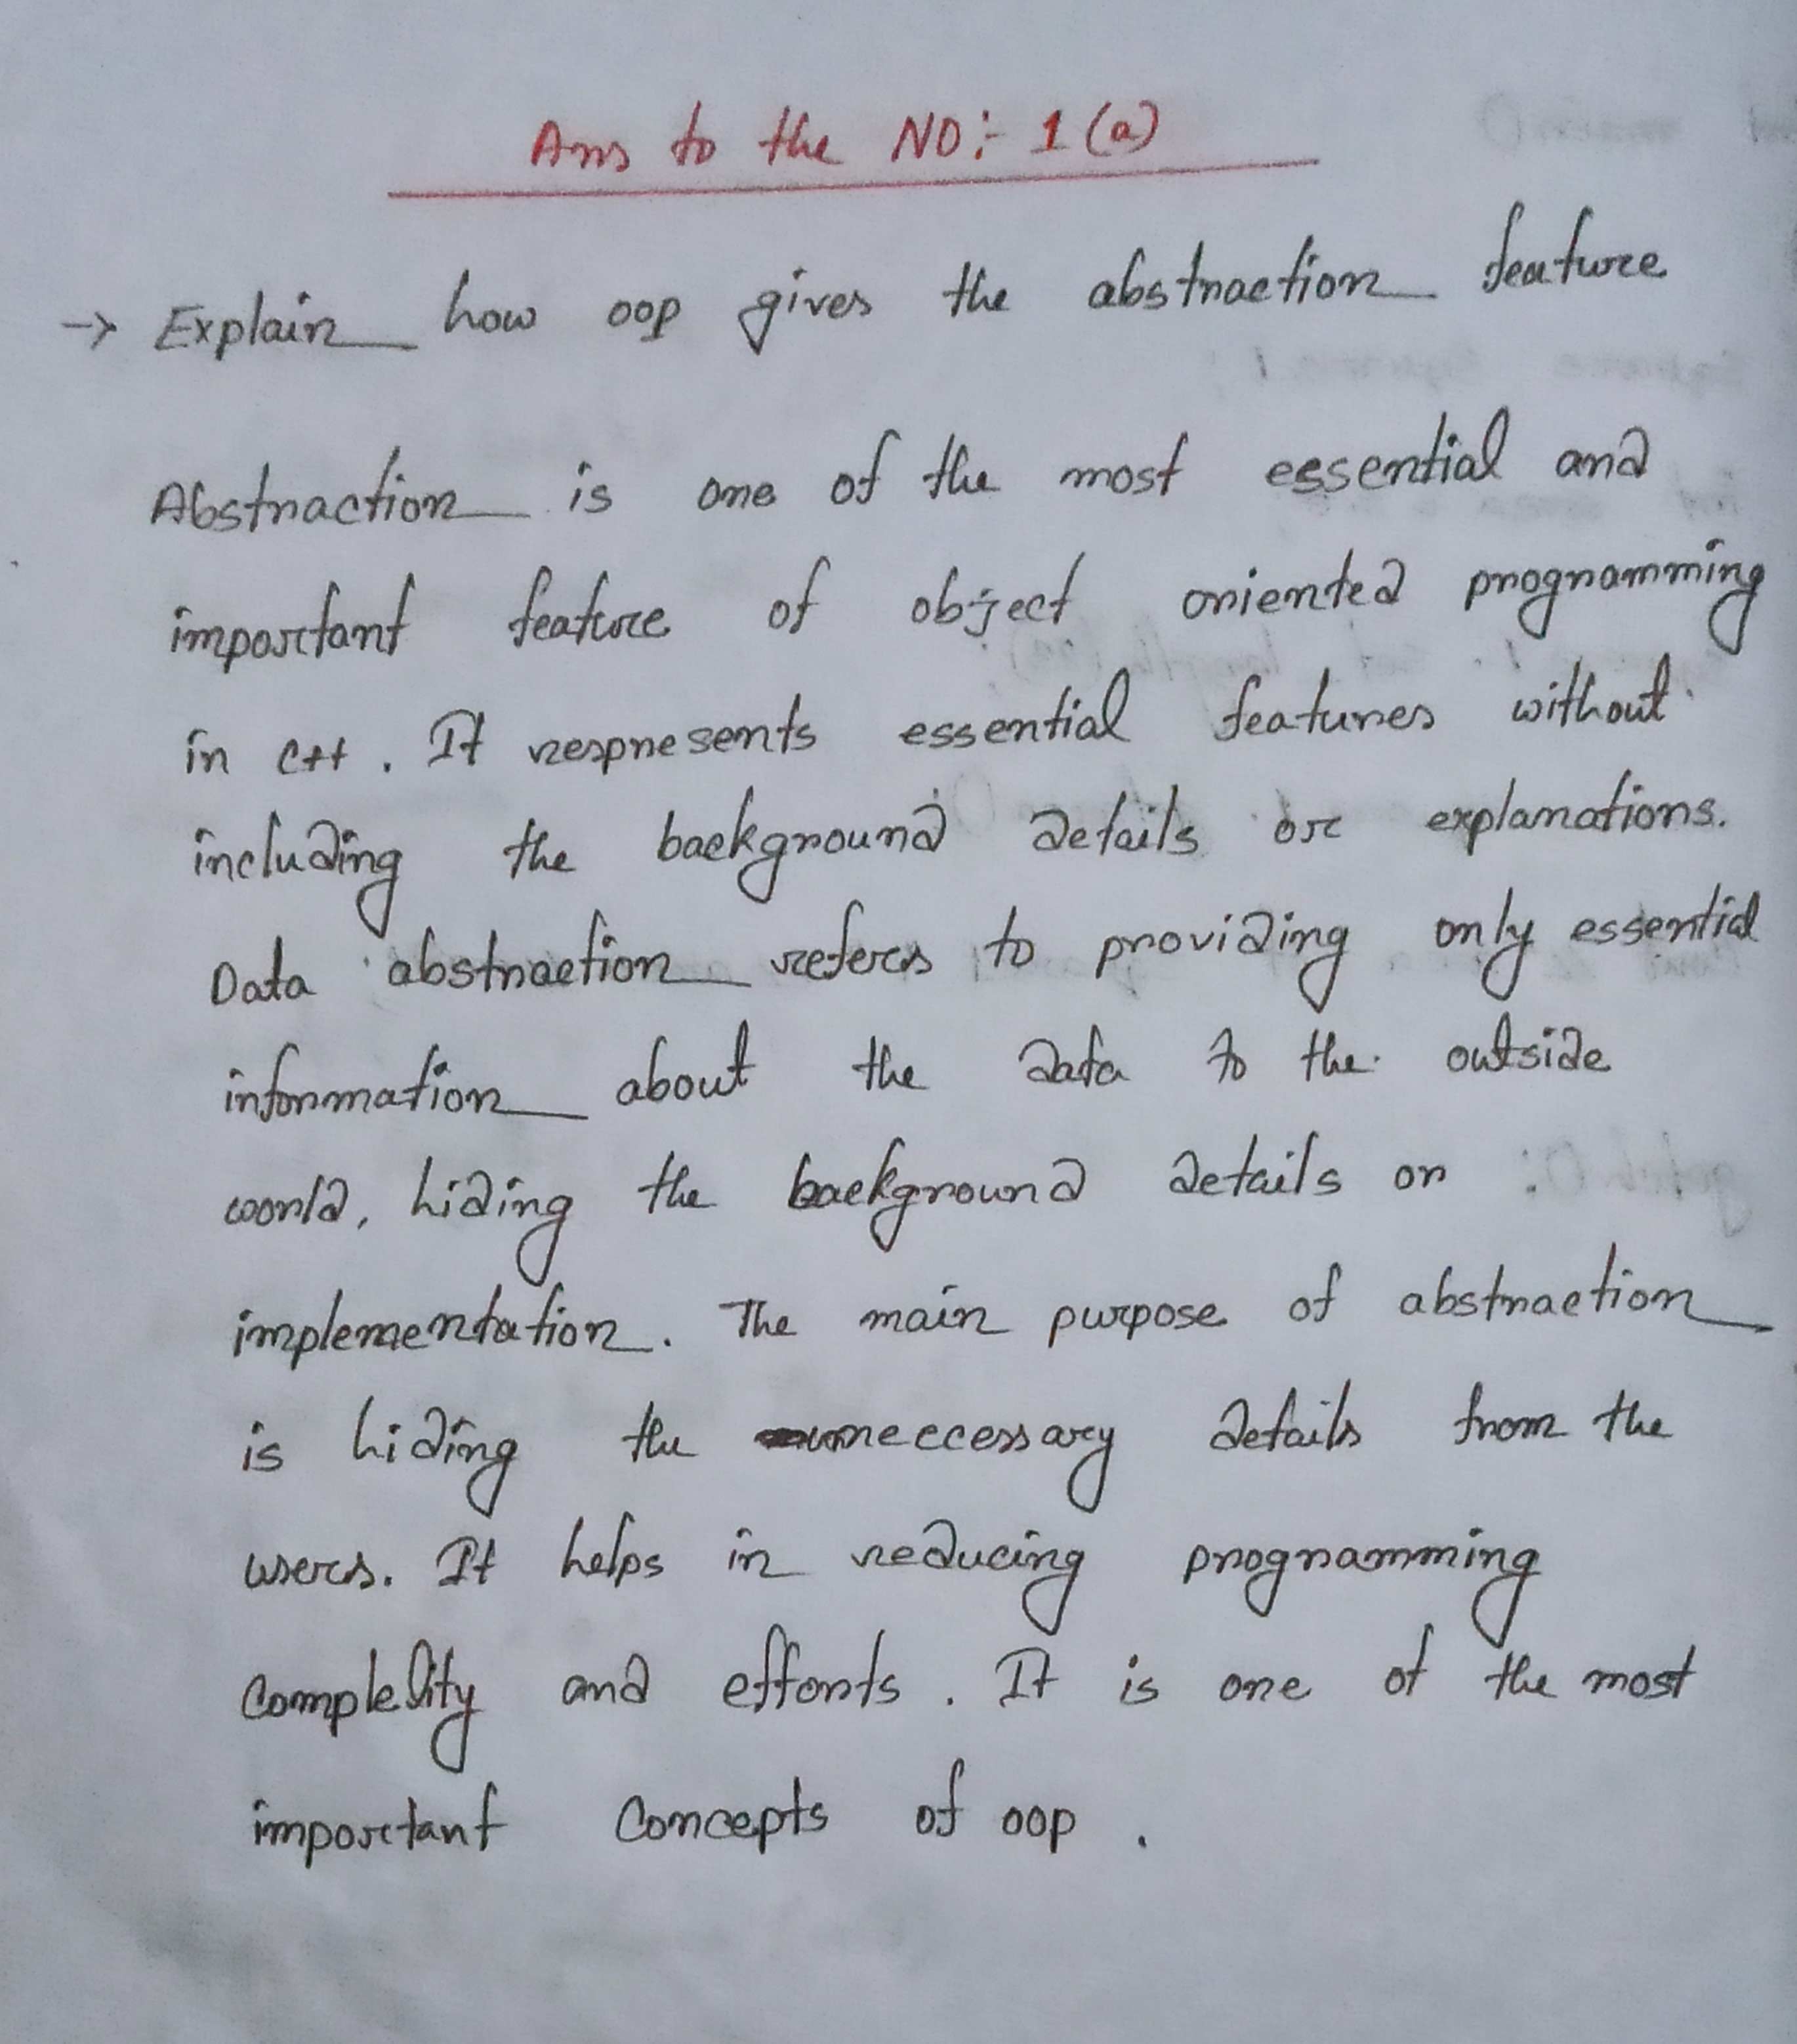 Ans to the NO:- 1 (a)
→ Explain how oop gives the abstraction feature
Abstraction is one of the most essential and
important feature of object oriented programming
in c++. It respresents essential features without
including the background details or explanations.
Data abstraction refers to providing only essential
information about the data to the outside
world, hiding the background details or
implementation. The main purpose of abstraction
is hiding the unneccessary details from the
users. It helps in reducing programming
complexity and efforts. It is one of the most
important concepts of oop.